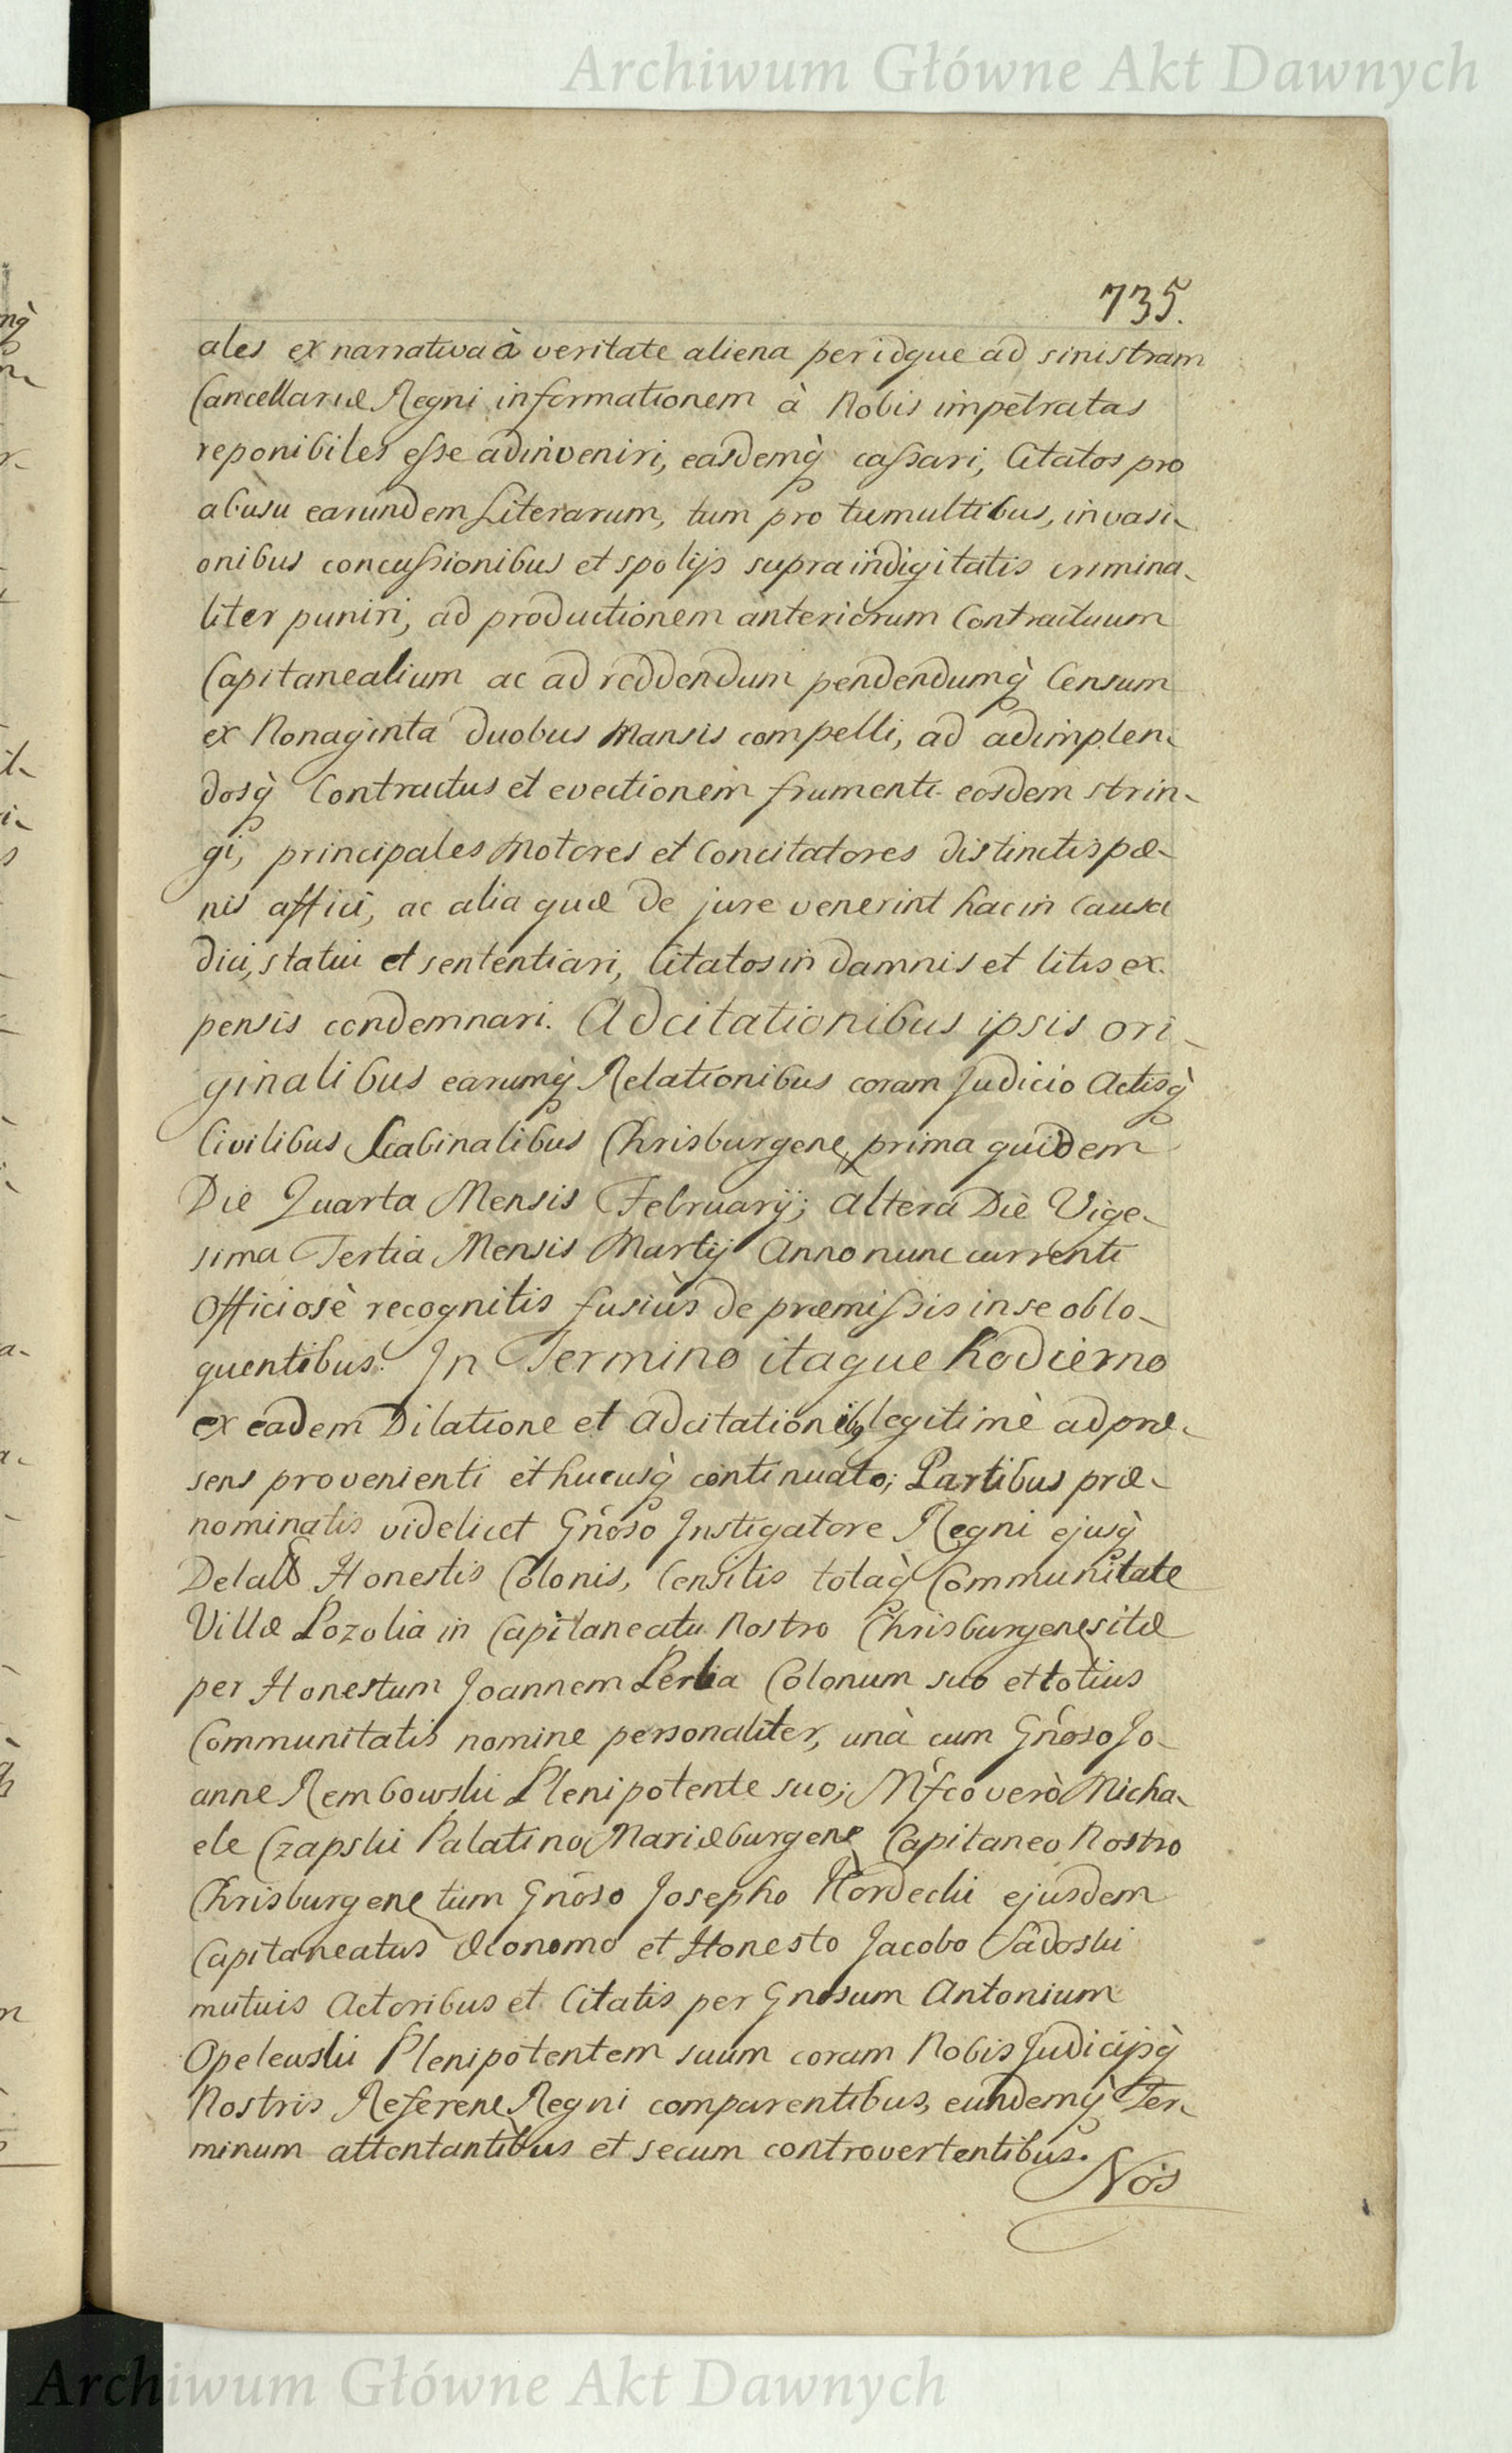 Archiwum Główne Akt Dawnych
735.
ales ex narrativa à veritate aliena peridque ad sinistram
Cancellariæ Regni informationem à Nobis impetratas
reponibiles esse adinveniri, easdemq̀ cassari, Citatos pro
abusu earundem Literarum, tum pro tumultibus, invasi-
onibus concussionibus et spolijs supraindigitatis crimina-
liter puniri, ad productionem anteriorum Contractuum
Capitanealium ac ad reddendum pendendumq̀ Censum
ex Nonaginta duobus Mansis compelli, ad adimplen-
dosq̀ Contractus et evectionem frumenti eosdem strin-
gi, principales Motores et Concitatores distinctis pœ-
nis affici, ac alia quæ de jure venerint hac in Causa
dici, statui et sententiari, Citatos in damnis et litis ex-
pensis condemnari. Adcitationibus ipsis ori-
ginalibus earumq̀ Relationibus coram Judicio Actisq̀
Civilibus Scabinalibus Chrisburgen, prima quidem
Die Quarta Mensis Februarij; altera Die Vige-
sima Tertia Mensis Martij Anno nunc currenti
Officiosè recognitis fusiùs de præmissis in se oblo-
quentibus. In Termino itaque hodierno
ex eadem Dilatione et adcitationib, legitimè ad præ-
sens provenienti et hucusq̀ continuato; Partibus præ-
nominatis videlicet Gñoso Instigatore Regni ejusq̀
Honestis Colonis, Censitis totaq̀ Communitate
Villæ Pozolia in Capitaneatu Nostro Chrisburgen sitæ
per Honestum Joannem Perlia Colonum suo et totius
Communitatis nomine personaliter, unà cum Gñoso Jo-
anne Rembowski Plenipotente suo; Mfco verò Micha-
ele Czapski Palatino Mariæburgen Capitaneo Nostro
Chrisburgen tum Gñoso Josepho Hordecki ejusdem
Capitaneatus Œconomo et Honesto Jacobo Sadoski
mutuis Actoribus et Citatis per Gnosum Antonium
Opelewski Plenipotentem suum coram Nobis Judicijsq̀
Nostris Referen Regni comparentibus, eundemq̀ Ter-
minum attentantibus et secum controvertentibus.
Nos
Archiwum Główne Akt Dawnych